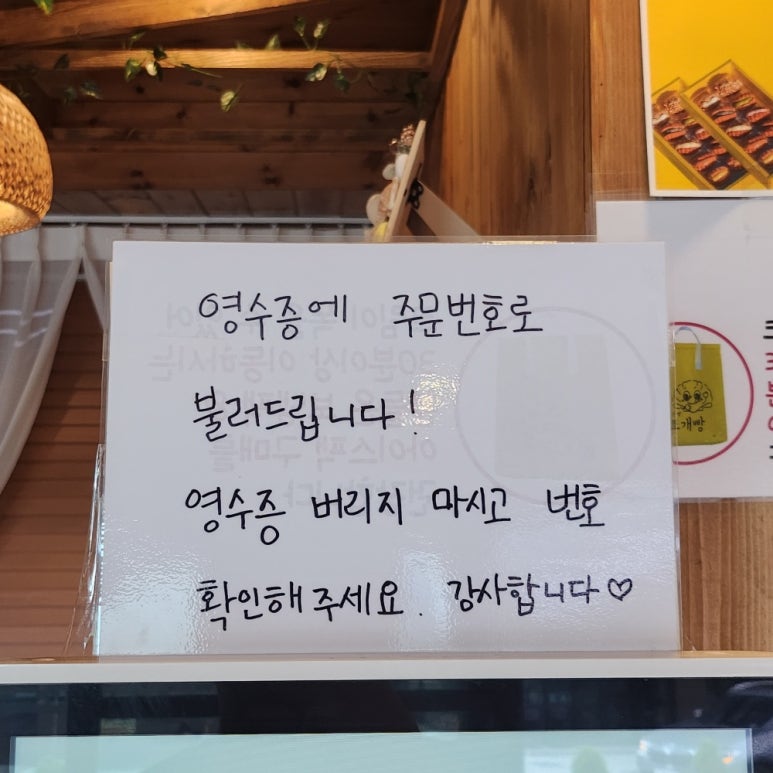 영수증에 주문번호로
불러드립니다!
영수증 버리지 마시고 번호
확인해주세요. 감사합니다♡
개빵